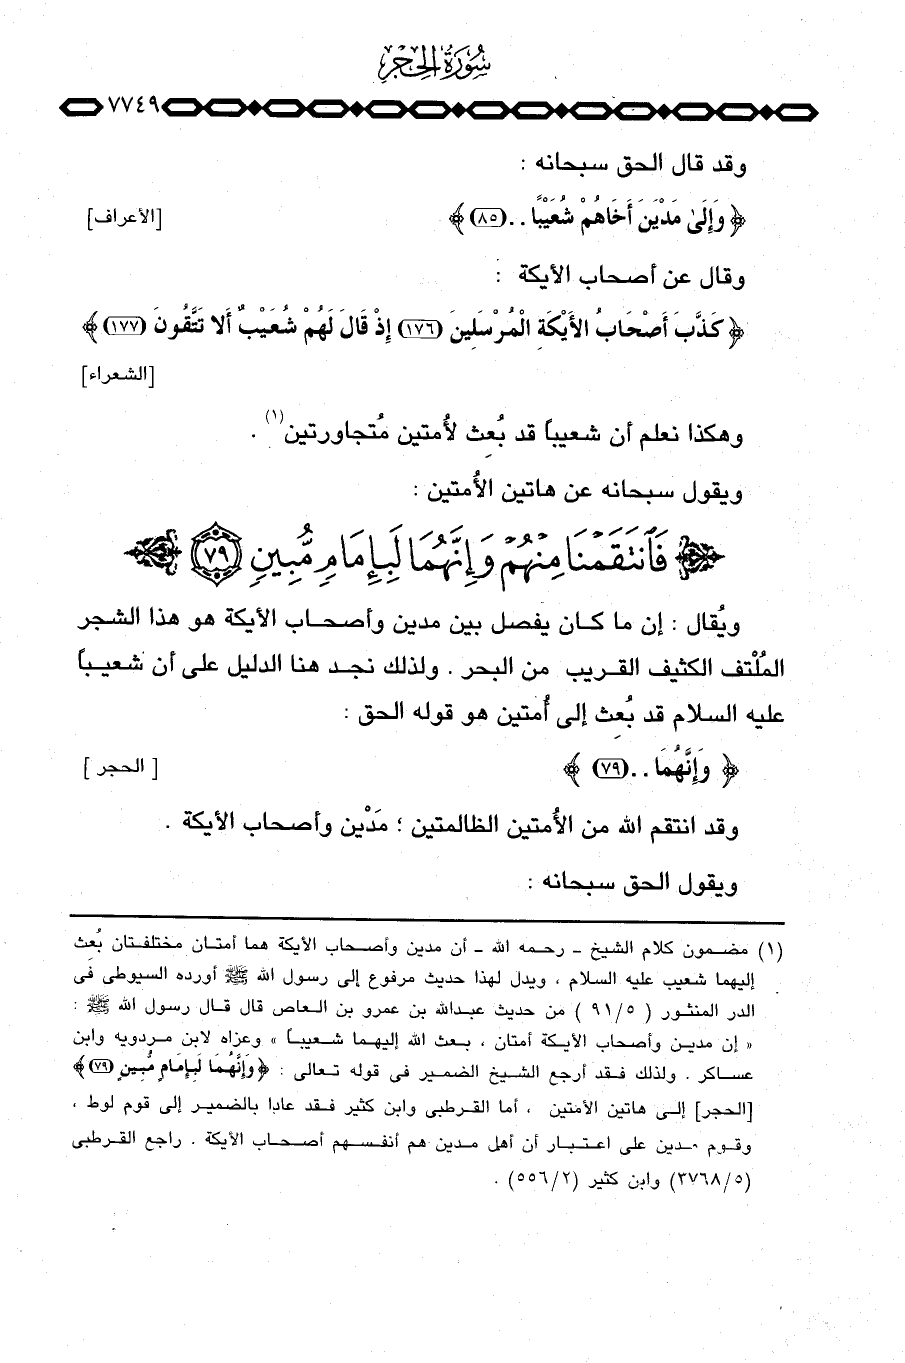 سُورَةُ الحِجرِ
٧٧٤٩
وقد قال الحق سبحانه :
﴿ وَإِلَىٰ مَدْيَنَ أَخَاهُمْ شُعَيْبًا .. (٨٥) ﴾ [الأعراف]
وقال عن أصحاب الأيكة :
﴿ كَذَّبَ أَصْحَابُ الأَيْكَةِ الْمُرْسَلِينَ (١٧٦) إِذْ قَالَ لَهُمْ شُعَيْبٌ أَلا تَتَّقُونَ (١٧٧) ﴾
[الشعراء]
وهكذا نعلم أن شعيباً قد بُعِث لأُمتين مُتجاورتين(١) .
ويقول سبحانه عن هاتين الأُمتين :
فَٱنتَقَمْنَا مِنْهُمْ وَإِنَّهُمَا لَبِإِمَامٍ مُّبِينٍ ٧٩
ويُقال : إن ما كـان يفصل بين مدين وأصحـاب الأيكة هو هذا الشجر
المُلْتف الكثيف القريب من البحر . ولذلك نجد هنا الدليل على أن شعيباً
عليه السلام قد بُعِث إلى أُمتين هو قوله الحق :
﴿ وَإِنَّهُمَا .. (٧٩) ﴾ [ الحجر ]
وقد انتقم الله من الأُمتين الظالمتين ؛ مَدْين وأصحاب الأيكة .
ويقول الحق سبحانه :
(١) مضمون كلام الشيخ - رحمه الله - أن مدين وأصحاب الأيكة هما أمتان مختلفتان بُعث
إليهما شعيب عليه السلام ، ويدل لهذا حديث مرفوع إلى رسول الله ﷺ أورده السيوطى فى
الدر المنثور ( ٩١/٥ ) من حديث عبدالله بن عمرو بن العاص قال قال رسول الله ﷺ :
« إن مدين وأصحاب الأيكة أمتان ، بعث الله إليهما شعيباً » وعزاه لابن مردويه وابن
عساكر . ولذلك فقد أرجع الشيخ الضمير فى قوله تعالى : ﴿ وَإِنَّهُمَا لَبِإِمَامٍ مُّبِينٍ (٧٩) ﴾
[الحجر] إلى هاتين الأمتين ، أما القرطبى وابن كثير فقد عادا بالضمير إلى قوم لوط ،
وقوم مدين على اعتبار أن أهل مدين هم أنفسهم أصحاب الأيكة . راجع القرطبى
(٣٧٦٨/٥) وابن كثير (٥٥٦/٢) .